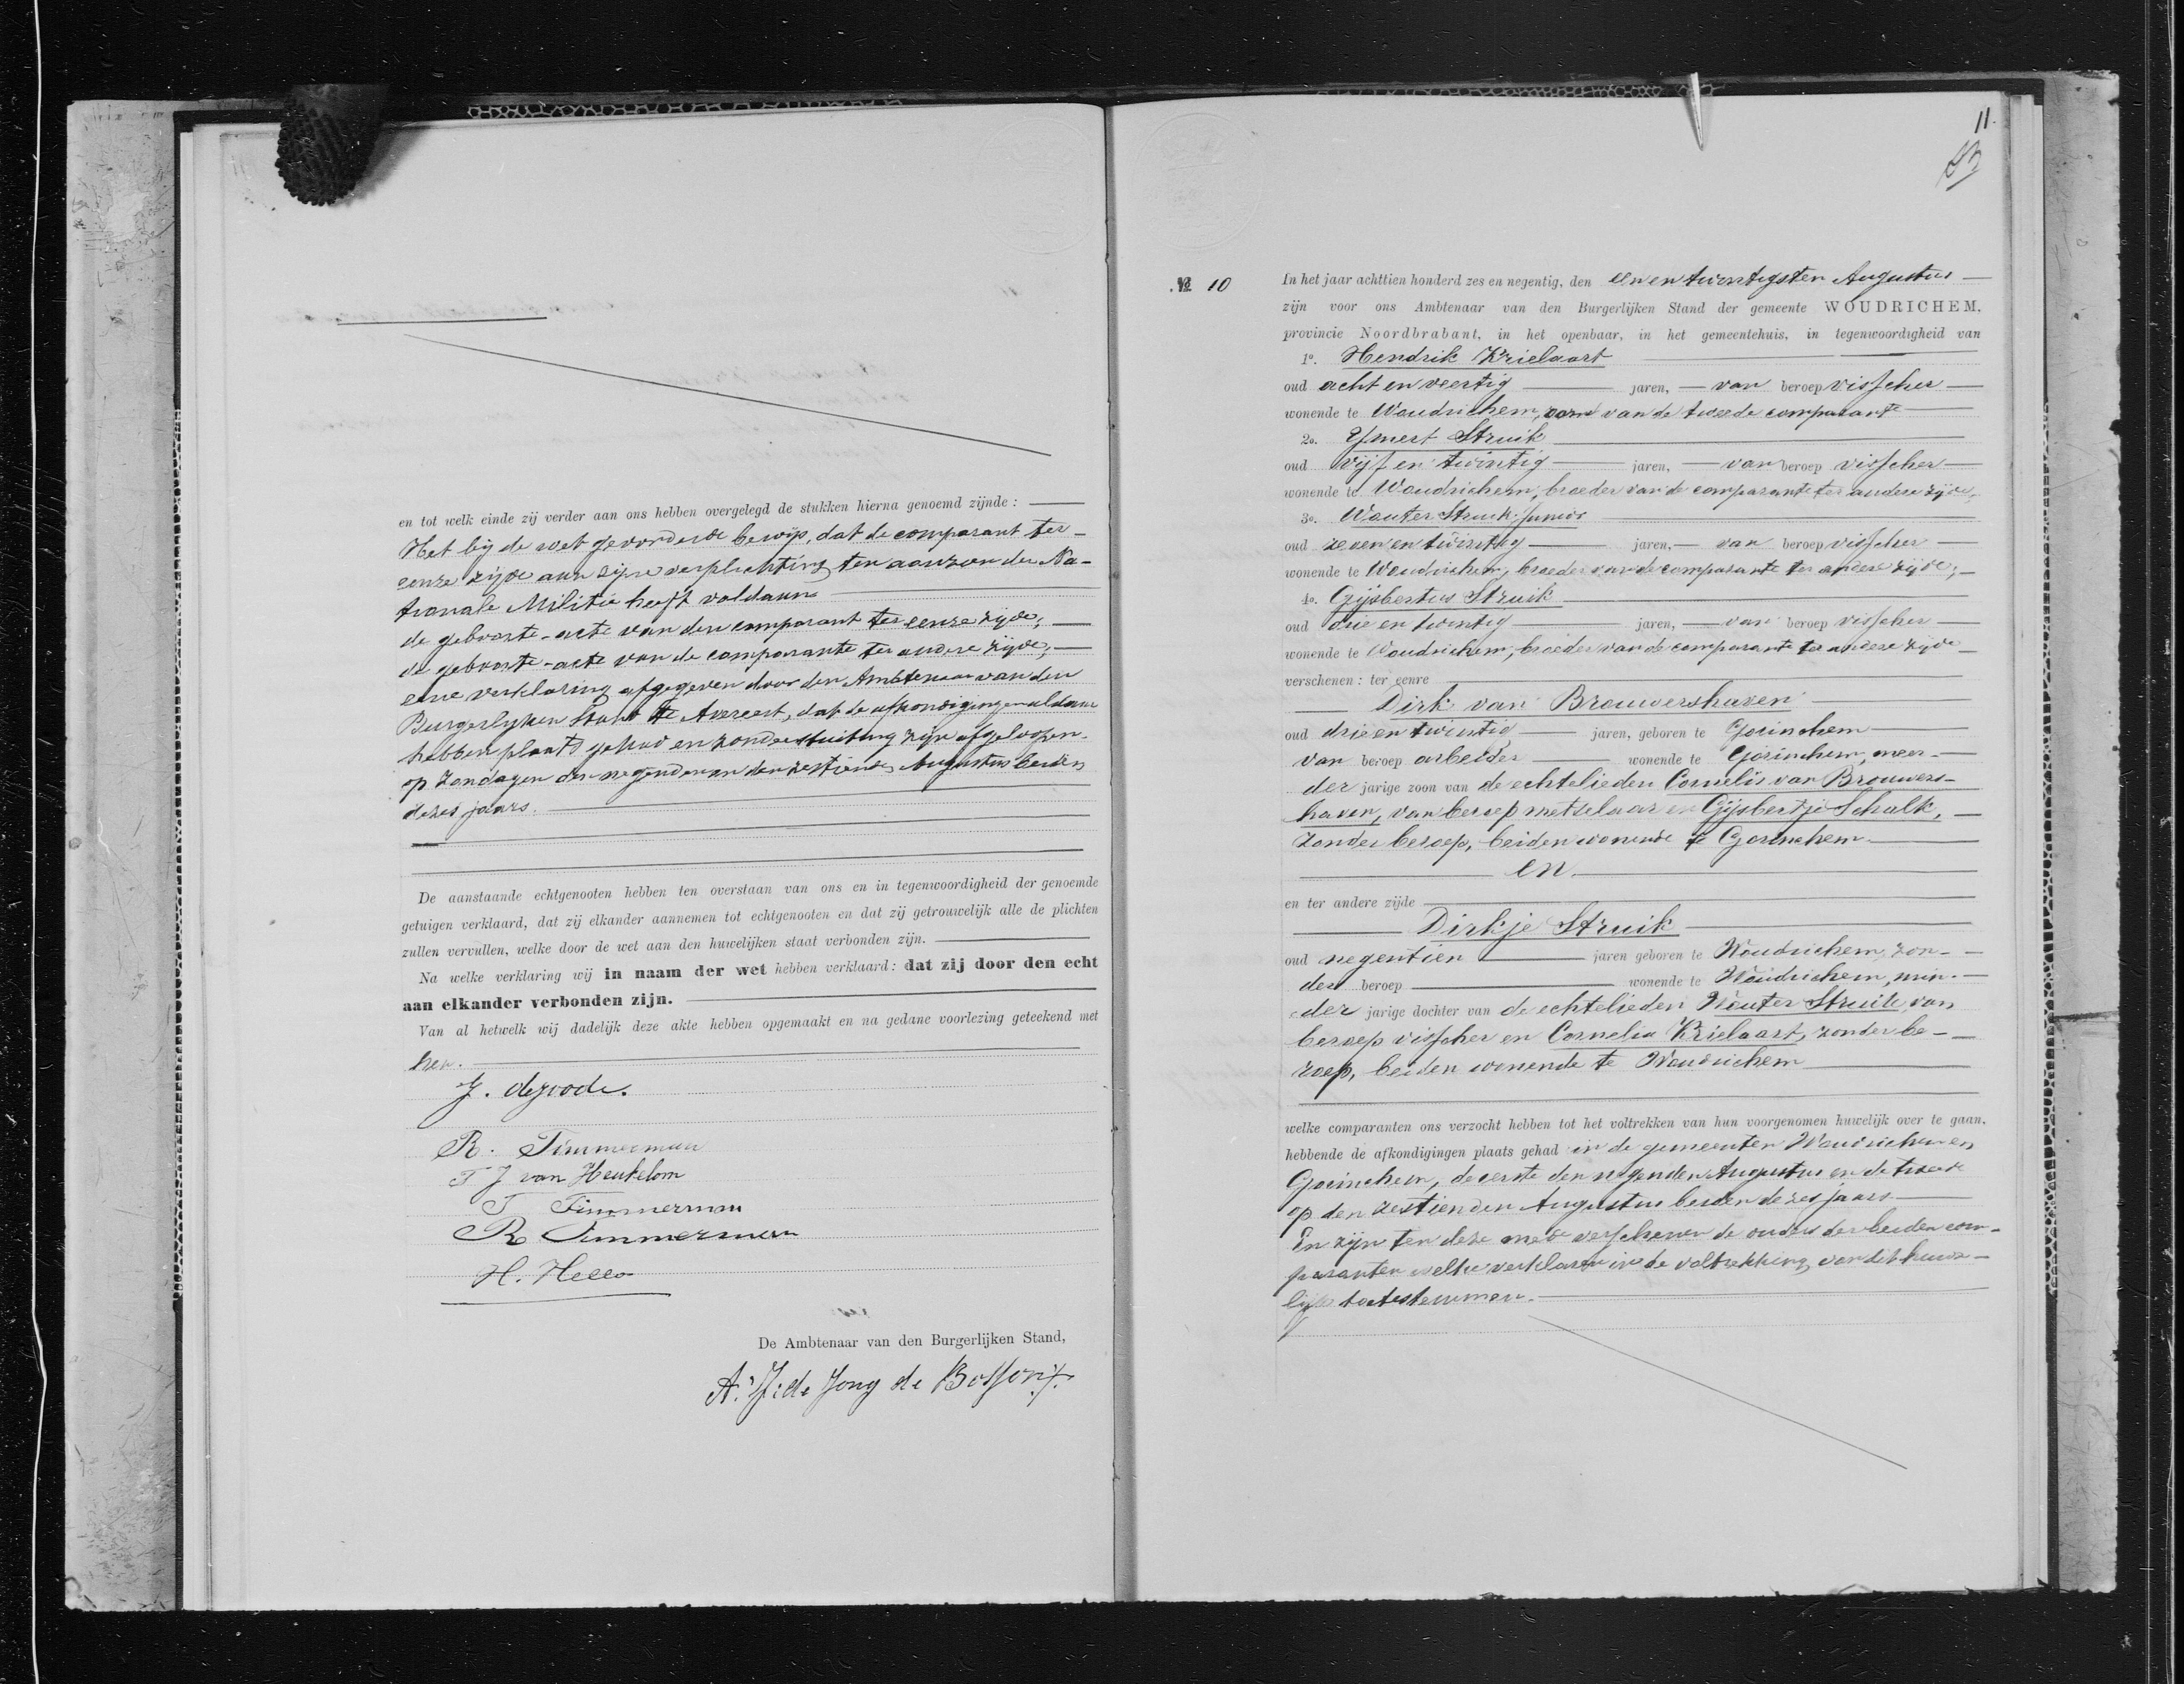 en tot welk einde zij verder aan ons hebben overgelegd de stukken hierna genoemd zijnde:
Het bij de wet gevorderde bewijs, dat de comparant ter
eenre zijde aan zijne verplichting ten aanzien der Na-
tionale Militie heeft voldaan
de geboorte-acte van den comparant ter eenre zijde;
de geboorte-acte van de comparante ter andere zijde;
eene verklaring afgegeven door den Ambtenaar van den
Burgerlijken Stand te Avereest, dat de afkondigingen aldaar
hebben plaats gehad en zonder stuiting zijn afgeloopen
op Zondagen den negenden en den zestienden Augustus beiden
dezes jaars.
De aanstaande echtgenooten hebben ten overstaan van ons en in tegenwoordigheid der genoemde
getuigen verklaard, dat zij elkander aannemen tot echtgenooten en dat zij getrouwelijk alle de plichten
zullen vervullen, welke door de wet aan den huwelijken staat verbonden zijn.
Na welke verklaring wij in naam der wet hebben verklaard: dat zij door den echt
aan elkander verbonden zijn.
Van al hetwelk wij dadelijk deze akte hebben opgemaakt en na gedane voorlezing geteekend met
hen.
J. de joode.
R. Timmerman
T J van Heukelom
T Timmerman
R Timmerman
H. Hello
De Ambtenaar van den Burgerlijken Stand,
A. J. de Jong de
11.
№ 10
In het jaar achttien honderd zes en negentig, den een en twintigsten Augustus
zijn voor ons Ambtenaar van den Burgerlijken Stand der gemeente WOUDRICHEM,
provincie Noordbrabant, in het openbaar, in het gemeentehuis, in tegenwoordigheid van
1o. Hendrik Krielaart
oud acht en veertig jaren, van beroep visscher
wonende te Woudrichem, oom van de tweede comparante
2o. IJmert Struik
oud vijf en twintig jaren, van beroep visscher
wonende te Woudrichem, broeder van de comparante ter andere zijde,
3o. Wouter Struik junior
oud zeven en twintig jaren, van beroep visscher
wonende te Woudrichem, broeder van de comparante ter andere zijde;
4o. Gijsbertus Struik
oud drie en twintig jaren, van beroep visscher
wonende te Woudrichem, broeder van de comparante ter andere zijde
verschenen: ter eenre
Dirk van Brouwershaven
oud drie en twintig jaren, geboren te Gorinchem
van beroep arbeider wonende te Gorinchem, meer-
der jarige zoon van de echtelieden Cornelis van Brouwers-
haven, van beroep metselaar en Gijsbertje Schalk,
zonder beroep, beiden wonende te Gorinchem
en
en ter andere zijde
Dirkje Struik
oud negentien jaren geboren te Woudrichem, zon-
der beroep wonende te Woudrichem, min-
der jarige dochter van de echtelieden Wouter Struik, van
beroep visscher en Cornelia Krielaart, zonder be-
roep, beiden wonende te Woudrichem
welke comparanten ons verzocht hebben tot het voltrekken van hun voorgenomen huwelijk over te gaan,
hebbende de afkondigingen plaats gehad in de gemeenten Woudrichem en
Gorinchem, de eerste den negenden Augustus en de tweede
op den zestienden Augustus beiden dezes jaars.
En zijn ten deze mede verschenen de ouders der beiden com-
paranten welke verklaren in de voltrekking van dit huwe-
lijk toetestemmen.